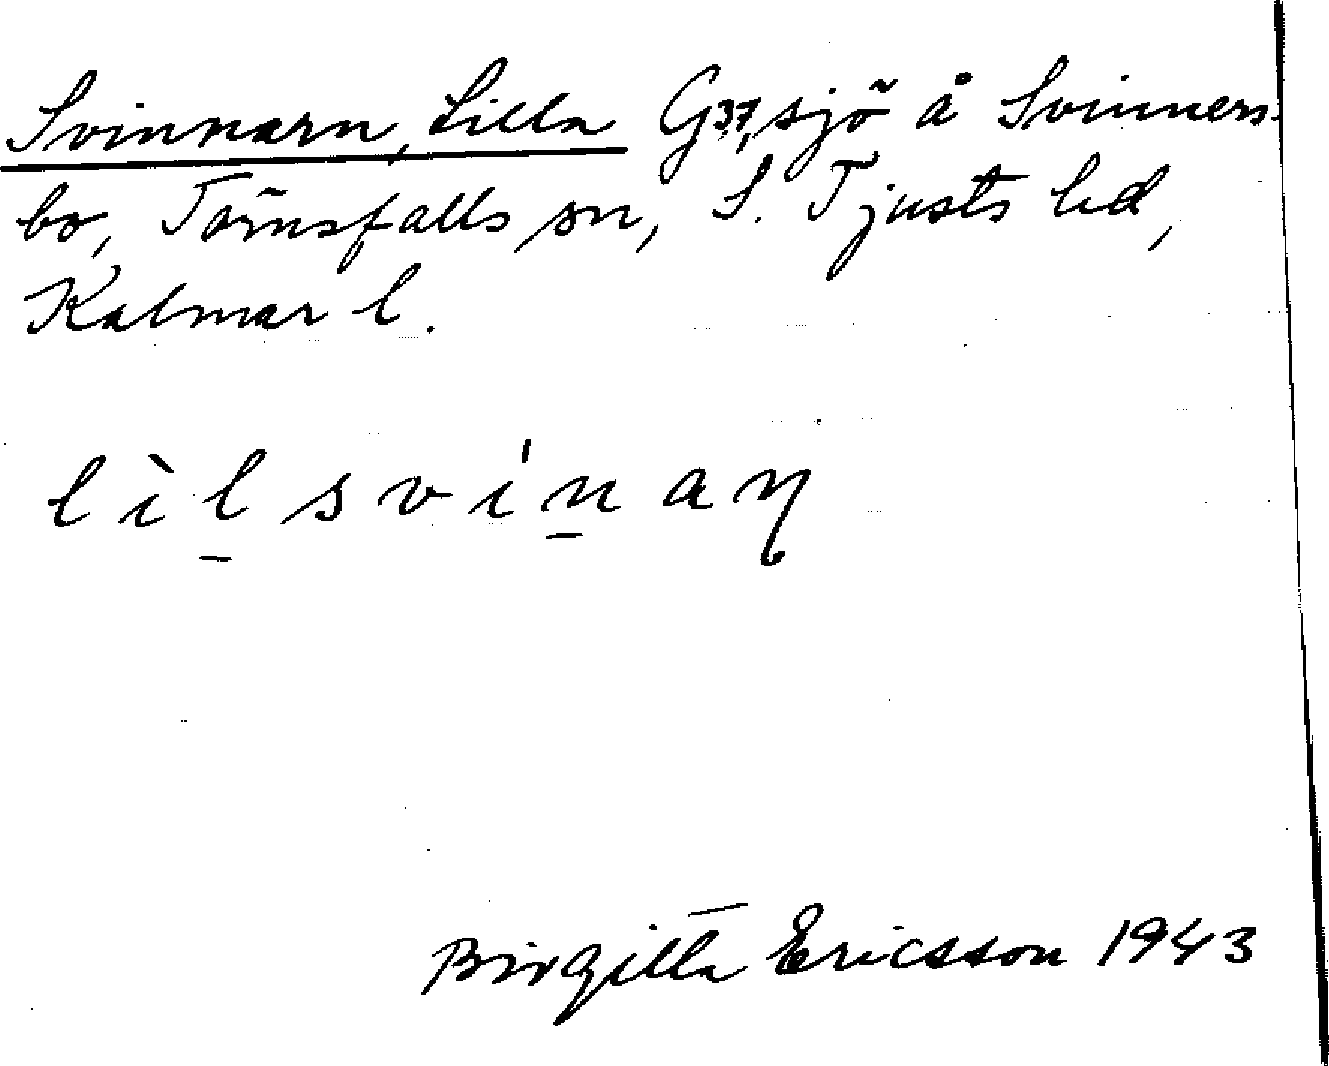 Svinnarn, Lilla G37, sjö å Svinners-
bo, Törnsfalls sn, S. Tjusts hd,
Kalmar l.
lìl̲svíṉaɳ
Birgitta Ericsson 1943